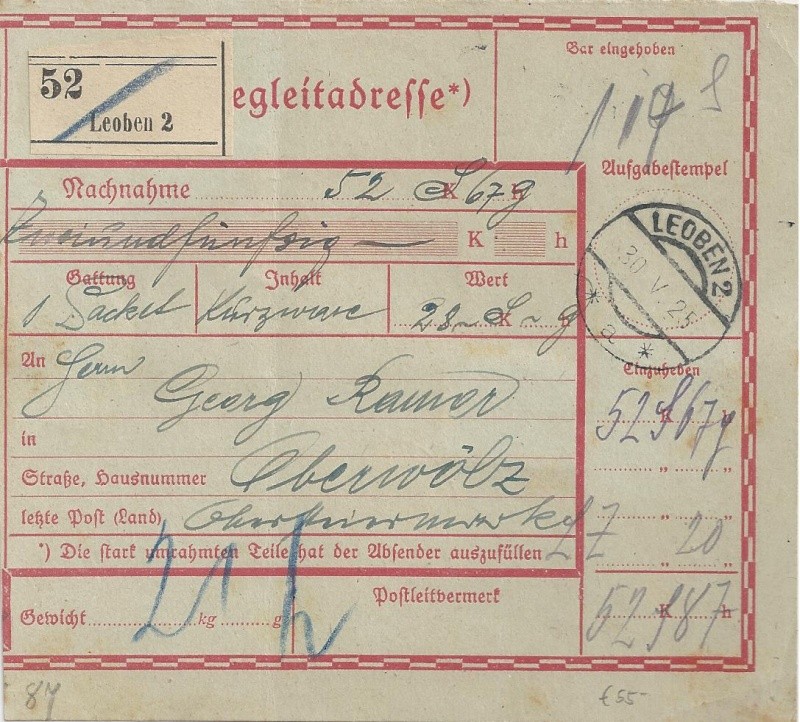 52
Leoben 2
egleitadresse*)
Bar eingehoben
S
Aufgabestempel
LEOBEN 2
30. V. 25
* a *
Nachnahme 52 S K 67 g h
Zweiundfünfzig — K h
Gattung Inhalt Wert
1 Packet Kurzware 28 - S K - g h
An Herrn
Georg
in
Straße, Hausnummer Oberwölz
letzte Post (Land) Obersteiermark
*) Die stark umrahmten Teile hat der Absender auszufüllen
Einzuheben
52 S K 67 g h
" "
" 20 "
52 S K 87 h
Postleitvermerk
Gewicht kg g
87
€ 55-